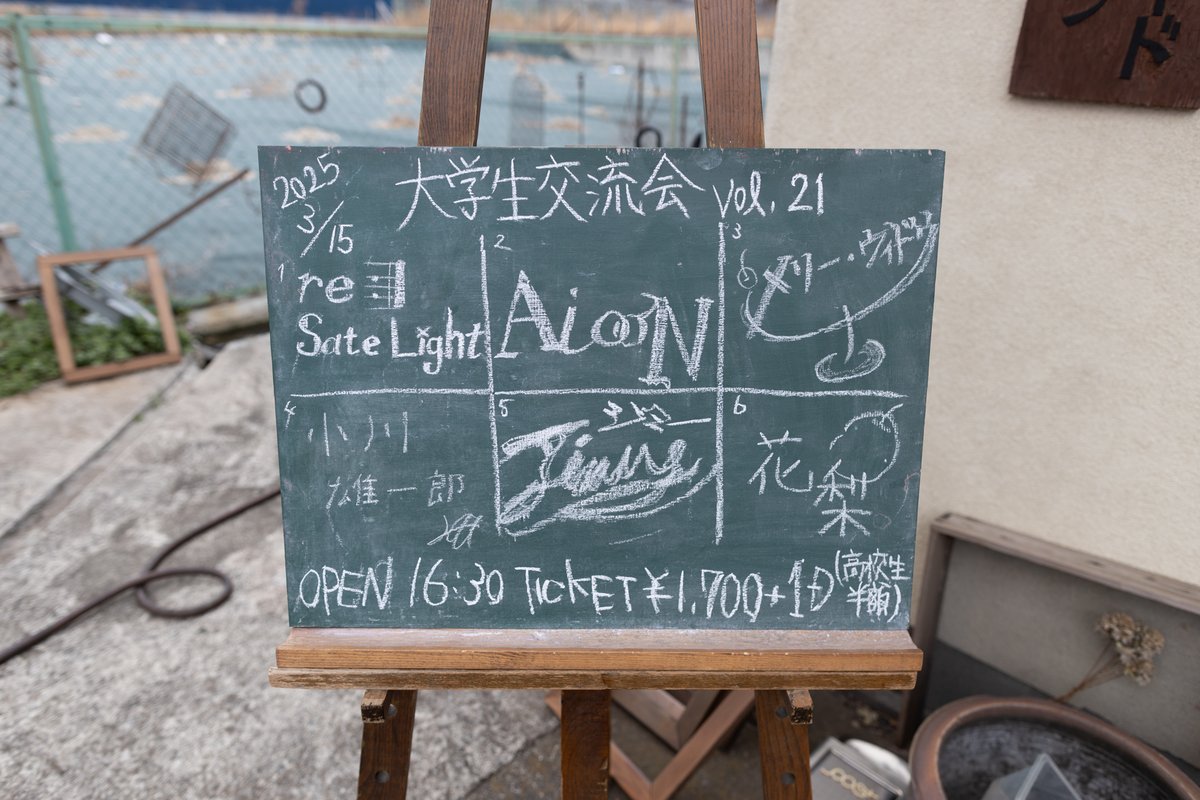 2025
3/15
大学生交流会 vol. 21
1
re
Sate Light
2
AiooN
3
メリー・ウィドウ
4
小川
雄一郎
5
ジミー
Jimmy
6
花梨
OPEN 16:30 TICKET ¥1,700+1D (高校生半額)